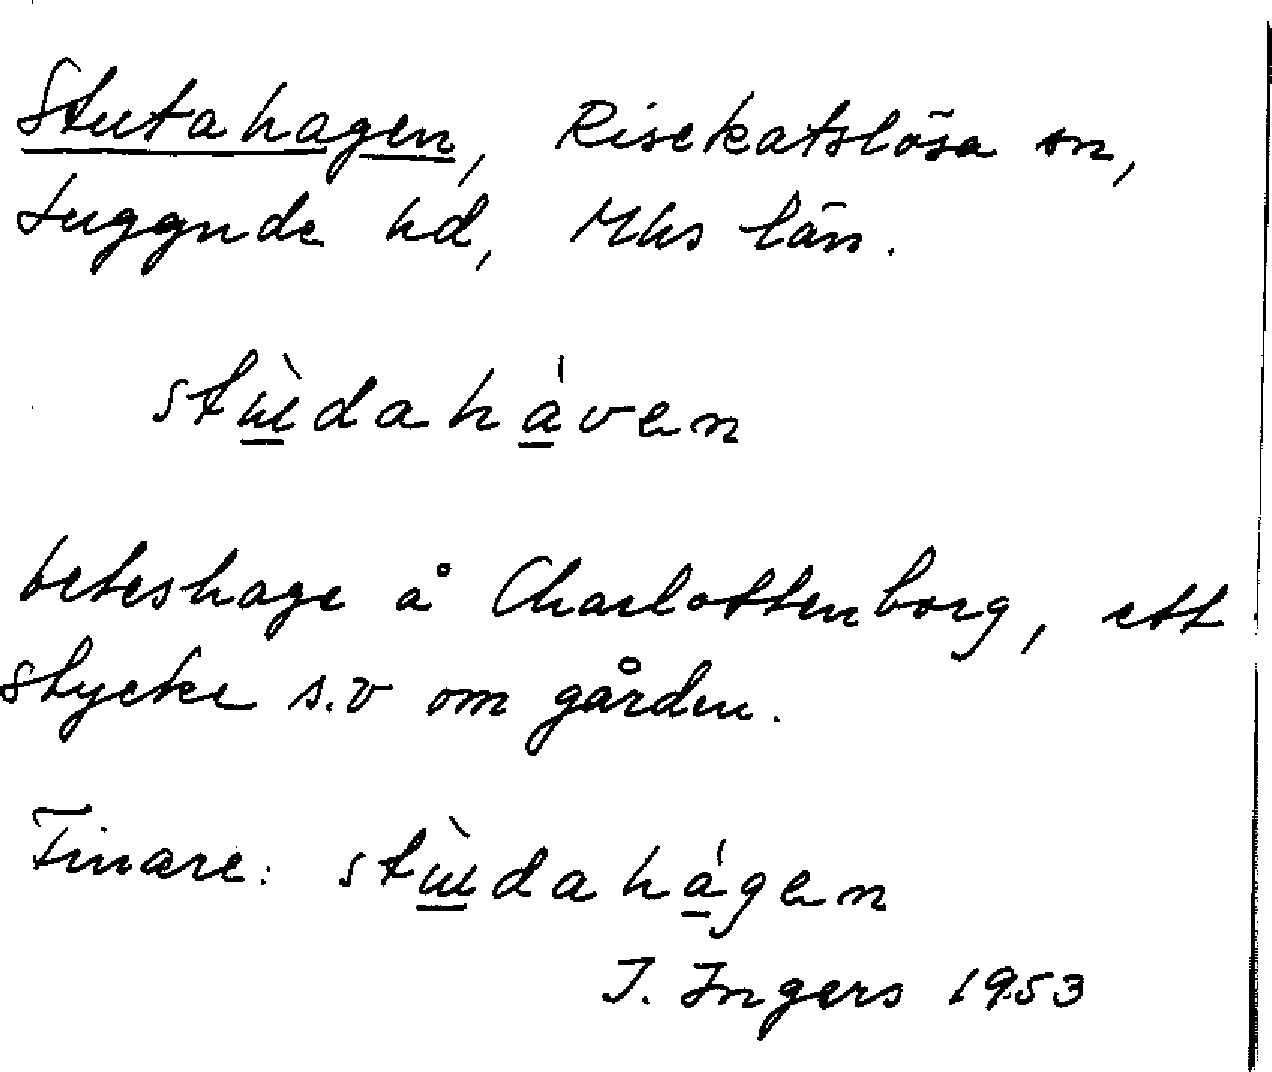 Stutahagen, Risekatslösa sn,
Luggude hd, Mhs län.
stɯ̀daháven
beteshage å Charlottenborg, ett
stycke s.v om gården.
Finare: stɯ̀dahágen
I. Ingers 1953